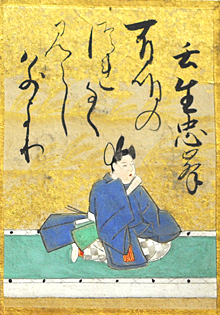 壬生忠岑
有明の
つれなく
見えし